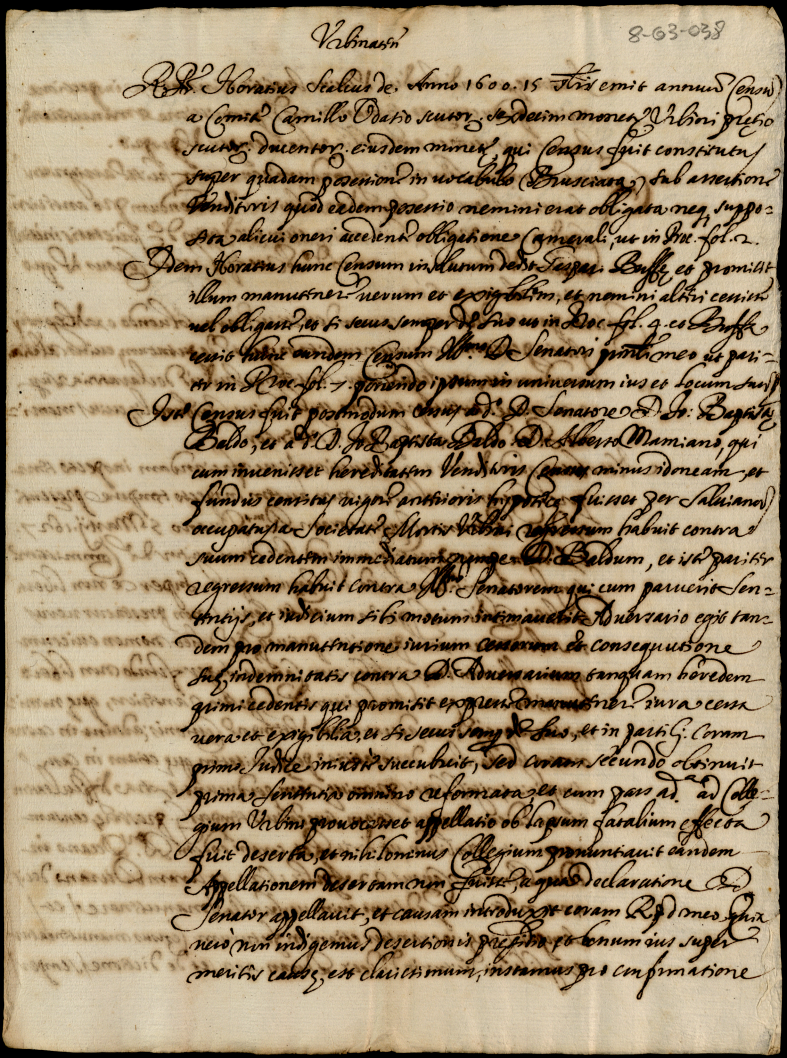 Urbinaten
8-63-038
R. Pr. Horatius Scalius de Anno 1600. 15 emit annuū Censū
a Comite Camillo Odatio scutor. sexdecim monetę Urbini prętio
scutor. ducentor. eiusdem monetę, qui Census fuit constitutus
super quadam possessione in vocabulo Brusciata, sub assertione
Venditoris quod eadem possessio nemini erat obligata neq, suppo-
sita alicui oneri accedente obligatione Camerali, ut in Proc. fol. 2.
Idem Horatius hunc Censum in solutum dedit Gaspari Buffę et promisit
illum manutenere verum et exigibilem, et nemini alteri cessisse
vel obligasse, et si secus semper de suo ut in Proc. fol. 4. et Buffa
cessit hunc eundem Censum Illmo D. Senatori meo ut pari-
ter in Proc. fol. 7. ponendo ipsum in universum ius et locum suū
Iste Census fuit postmodum cessus a d. D. Senatore D. Jo: Baptistę
Baldo, et a d. D. Jo Baptista Baldo D. Alberto Mamiano, qui
cum invenisset hereditatem Venditoris Census minus idoneam, et
fundus censitus vigore anterioris hippotecę fuisset per Salvianū
occupatus a Societate Mortis Urbini regressum habuit contra
suum cedentem immediatum nempe D. Baldum, et iste pariter
regressum habuit contra Illm. Senatorem qui cum paruerit Sen-
tentijs, et iudicium sibi motum intimaverit Adversario egit tan-
dem pro manutentione iurium cessorum et consequutione
suę indemnitatis contra D. Adversarium tanquam heredem
primi cedentis qui promisit expresse manutenere iura cessa
vera et exigibilia, et si secus semp de suo, et in partib. coram
primo Iudice iniuste succubuit, sed coram secundo obtinuit
prima sententia omnino reformata, et cum pars ad.a ad Colle-
gium Urbini provocasset appellatio ob lapsum fatalium effecta
fuit deserta, et nihilominus Collegium pronuntiavit eandem
Appellationem desertam non fuisse, a qua declaratione D.
Senator appellavit, et causam introduxit coram R.P.D. meo. Quia
vero non indigemus desertionis pręsidio, et bonum ius super
meritis causę, est clarissimum, instamus pro confirmatione